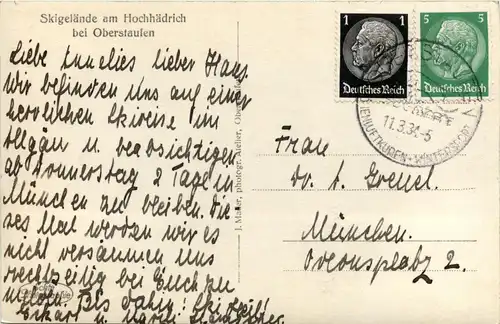 Skigelände am Hochhädrich
bei Oberstaufen
Liebe Annelies lieber Hans.
Wir befinden uns auf einer
herrlichen Skireise im
Allgäu u. beabsichtigen
ab Donnerstag 2 Tage in
München zu bleiben. Die-
ses Mal werden wir es
nicht versäumen uns
rechtzeitig bei Euch zu
melden. Bis dahin! Ski Heil!
Eckart u.
J. Maier, photogr. Atelier,
1 1
Deutsches Reich
5 5
Deutsches Reich
11.3.34-5
WINTERSPORT
Frau
Dr. t.
München.
Odeonsplatz 2.